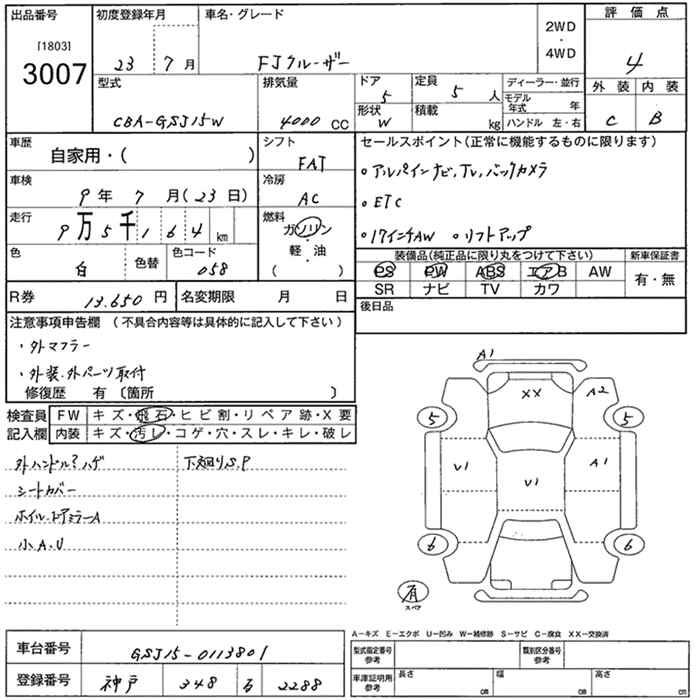 出品番号 初度登録年月 車名・グレード 2WD・4WD 評価点
[1803]
3007 23 7月 FJクルーザー 4
型式 排気量 ドア 5 定員 5人 ディーラー・並行 外装 内装
CBA-GSJ15W 4000 CC 形状 W 積載 kg モデル年式 年 C B
ハンドル 左・右
車歴 自家用・( ) シフト FAT セールスポイント(正常に機能するものに限ります)
車検 9年 7月(23日) 冷房 AC 。アルパインナビ,TV,バックカメラ
。ETC
走行 9万5千164km 燃料 ガソリン 。17インチAW 。リフトアップ
軽・油
( )
色 白 色替 色コード 058 装備品(純正品に限り丸をつけて下さい) 新車保証書
PS PW ABS エアB AW 有・無
SR ナビ TV カワ
R券 13.650円 名変期限 月 日 後日品
注意事項申告欄 (不具合内容等は具体的に記入して下さい)
・外マフラー
・外装.外パーツ取付
修復歴 有〔箇所 〕
検査員 FW キズ・飛石・ヒビ割・リペア跡・X要
記入欄 内装 キズ・汚レ・コゲ・穴・スレ・キレ・破レ
外ハンドル?ハゲ 下廻りS.P
シートカバー
ホイル.ドアミラーA
小A.U
A1
XX A2
5 5
U1 U1 A1
6 6
有
スペア
A−キズ E−エクボ U−凹み W−補修跡 S−サビ C−腐食 XX−交換済
車台番号 GSJ15-0113801 型式指定番号 参考 類別区分番号 参考
登録番号 神戸 348 る 2288 車庫証明用 参考 長さ cm 幅 cm 高さ cm